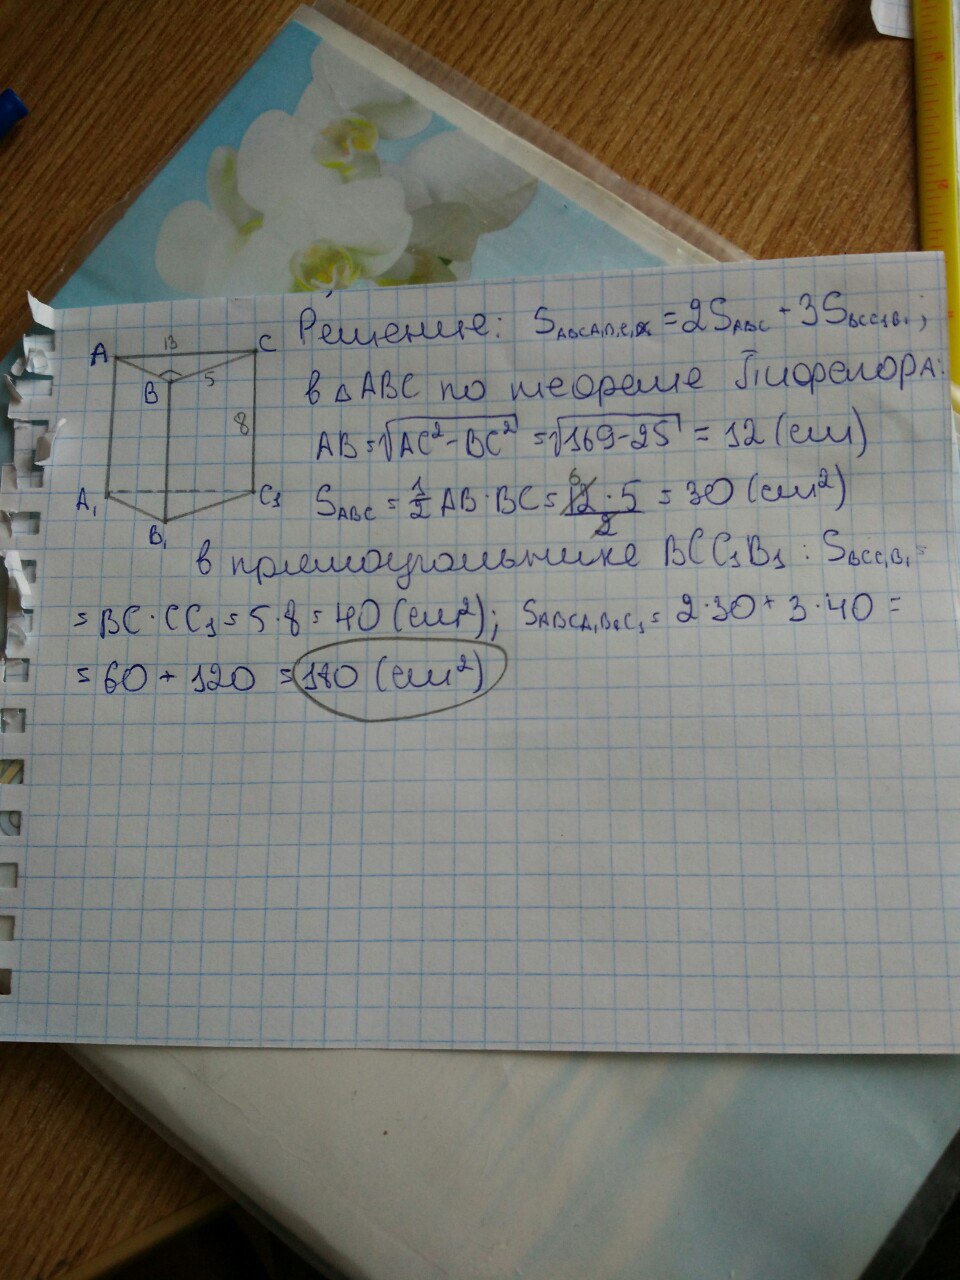 A 13 C
B 5
8
A₁ C₁
B₁
Решение: S_ABCA₁B₁C₁ = 2S_ABC + 3S_BCC₁B₁;
в △ABC по теореме Пифагора:
AB = √(AC² - BC²) = √(169 - 25) = 12 (см)
S_ABC = 1/2 AB · BC = 12 · 5 / 2 = 30 (см²)
6
в прямоугольнике BCC₁B₁ : S_BCC₁B₁ =
= BC · CC₁ = 5 · 8 = 40 (см²); S_ABCA₁B₁C₁ = 2·30 + 3·40 =
= 60 + 120 = 180 (см²)